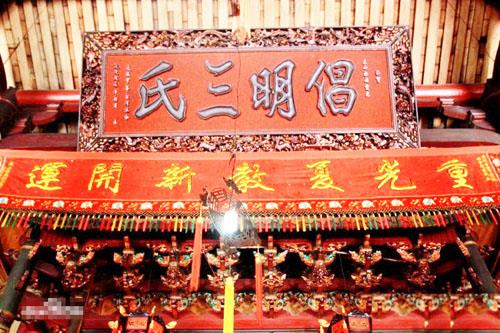 倡明三氏
重光夏教新開運